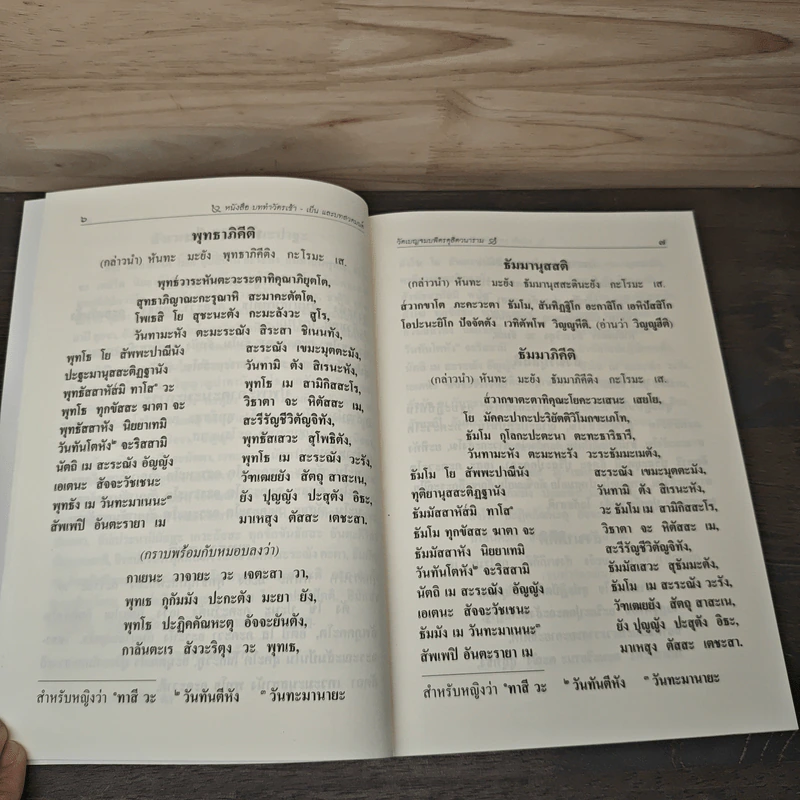 ๖
หนังสือ บททำวัตรเช้า - เย็น และบทสวดมนต์
พุทธาภิคีติ
(กล่าวนำ) หันทะ มะยัง พุทธาภิคีติง กะโรมะ เส.
พุทธ๎วาระหันตะวะระตาทิคุณาภิยุตโต,
สุทธาภิญาณะกะรุณาหิ สะมาคะตัตโต,
โพเธสิ โย สุชะนะตัง กะมะลังวะ สูโร,
วันทามะหัง ตะมะระณัง สิระสา ชิเนนทัง,
พุทโธ โย สัพพะปาณีนัง สะระณัง เขมะมุตตะมัง,
ปะฐะมานุสสะติฏฐานัง วันทามิ ตัง สิเรนะหัง,
พุทธัสสาหัส๎มิ ทาโส๑ วะ พุทโธ เม สามิกิสสะโร,
พุทโธ ทุกขัสสะ ฆาตา จะ วิธาตา จะ หิตัสสะ เม,
พุทธัสสาหัง นิยยาเทมิ สะรีรัญชีวิตัญจิทัง,
วันทันโตหัง๒ จะริสสามิ พุทธัสเสวะ สุโพธิตัง,
นัตถิ เม สะระณัง อัญญัง พุทโธ เม สะระณัง วะรัง,
เอเตนะ สัจจะวัชเชนะ วัฑเฒยยัง สัตถุ สาสะเน,
พุทธัง เม วันทะมาเนนะ๓ ยัง ปุญญัง ปะสุตัง อิธะ,
สัพเพปิ อันตะรายา เม มาเหสุง ตัสสะ เตชะสา.
(กราบพร้อมกับหมอบลงว่า)
กาเยนะ วาจายะ วะ เจตะสา วา,
พุทเธ กุกัมมัง ปะกะตัง มะยา ยัง,
พุทโธ ปะฏิคคัณหะตุ อัจจะยันตัง,
กาลันตะเร สังวะริตุง วะ พุทเธ,
สำหรับหญิงว่า ๑ทาสี วะ ๒วันทันตีหัง ๓วันทะมานายะ
วัดเบญจมบพิตรดุสิตวนาราม
๗
ธัมมานุสสติ
(กล่าวนำ) หันทะ มะยัง ธัมมานุสสะตินะยัง กะโรมะ เส.
ส๎วากขาโต ภะคะวะตา ธัมโม, สันทิฏฐิโก อะกาลิโก เอหิปัสสิโก
โอปะนะยิโก ปัจจัตตัง เวทิตัพโพ วิญญูหีติ. (อ่านว่า วิญญูฮีติ)
ธัมมาภิคีติ
(กล่าวนำ) หันทะ มะยัง ธัมมาภิคีติง กะโรมะ เส.
ส๎วากขาตะตาทิคุณะโยคะวะเสนะ เสยโย,
โย มัคคะปากะปะริยัตติวิโมกขะเภโท,
ธัมโม กุโลกะปะตะนา ตะทะธาริธารี,
วันทามะหัง ตะมะหะรัง วะระธัมมะเมตัง,
ธัมโม โย สัพพะปาณีนัง สะระณัง เขมะมุตตะมัง,
ทุติยานุสสะติฏฐานัง วันทามิ ตัง สิเรนะหัง,
ธัมมัสสาหัส๎มิ ทาโส๑ วะ ธัมโม เม สามิกิสสะโร,
ธัมโม ทุกขัสสะ ฆาตา จะ วิธาตา จะ หิตัสสะ เม,
ธัมมัสสาหัง นิยยาเทมิ สะรีรัญชีวิตัญจิทัง,
วันทันโตหัง๒ จะริสสามิ ธัมมัสเสวะ สุธัมมะตัง,
นัตถิ เม สะระณัง อัญญัง ธัมโม เม สะระณัง วะรัง,
เอเตนะ สัจจะวัชเชนะ วัฑเฒยยัง สัตถุ สาสะเน,
ธัมมัง เม วันทะมาเนนะ๓ ยัง ปุญญัง ปะสุตัง อิธะ,
สัพเพปิ อันตะรายา เม มาเหสุง ตัสสะ เตชะสา.
สำหรับหญิงว่า ๑ทาสี วะ ๒วันทันตีหัง ๓วันทะมานายะ